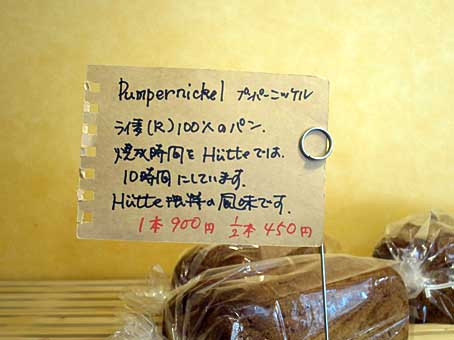 Pumpernickel プンパーニッケル
ライ麦(R)100%のパン.
焼成時間をHütteでは、
10時間にしています.
Hütte独特の風味です.
1本900円 1/2本450円